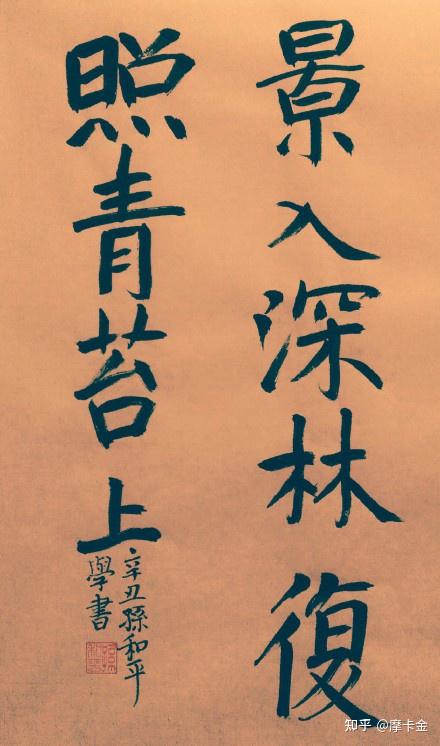 景入深林復
照青苔上
辛丑孫和平
學書
知乎 @摩卡金